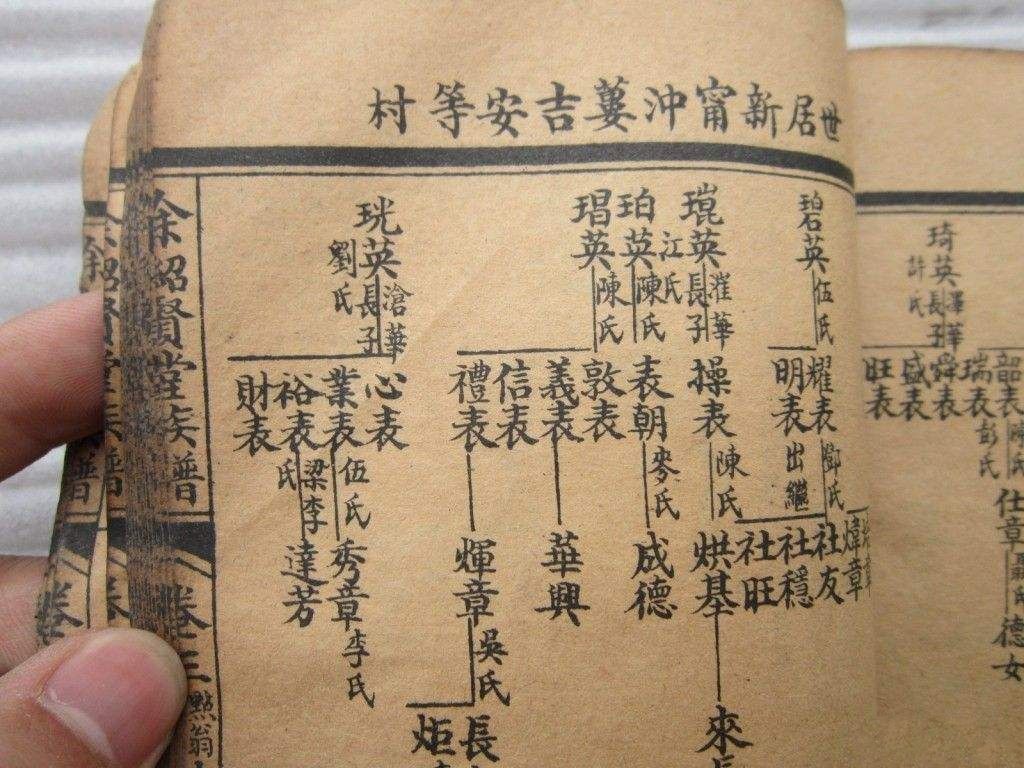 世居新甯沖蔞吉安等村
琦英 澤華長子 許氏
韶表 陳氏
瑞表 彭氏
舜表
盛表
旺表
仕章
德女
碧英 伍氏
耀表 鄧氏
明表 出繼
煒章
社友
社穩
社旺
琨英 漼華長子 江氏
操表 陳氏
烘基
來長
珀英 陳氏
表朝 麥氏
成德
琩英 陳氏
敦表
義表
信表
禮表
華興
煇章 吳氏
長
炬
珖英 滄華長子 劉氏
心表
業表 伍氏
裕表 梁李氏
財表
秀章 李氏
達芳
余紹賢堂族譜
卷三
點翁
余紹賢堂族譜
卷
余
普
卷